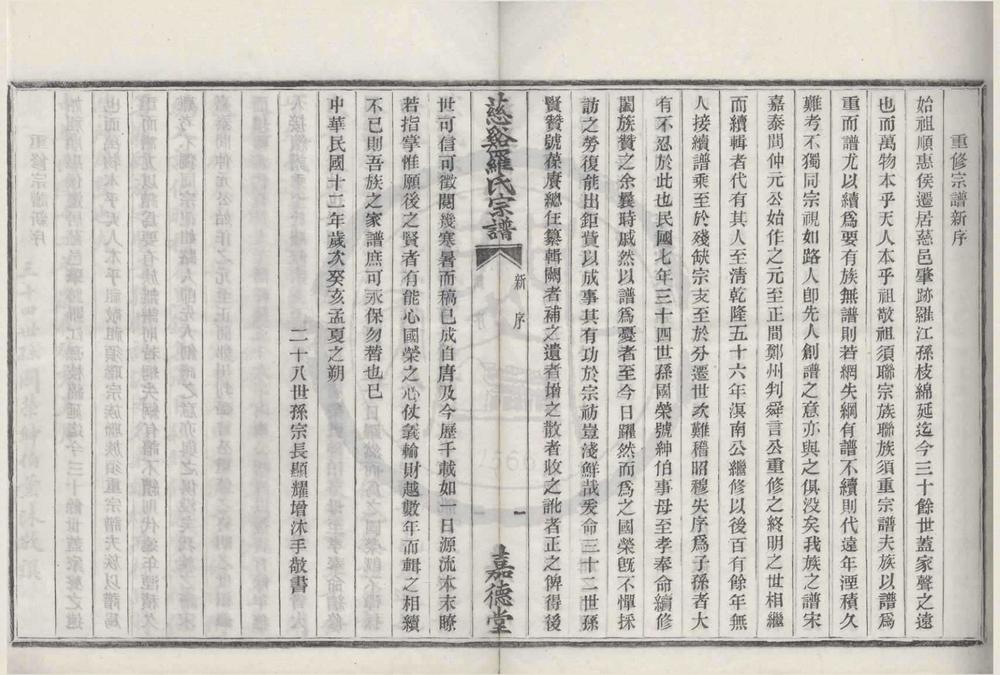 重修宗譜新序
始祖順惠侯遷居慈邑肇跡羅江孫枝綿延迄今三十餘世蓋家聲之遠
也而萬物本乎天人本乎祖敬祖須聯宗族聯族須重宗譜夫族以譜爲
重而譜尤以續爲要有族無譜則若網失綱有譜不續則代遠年湮積久
難考不獨同宗視如路人卽先人創譜之意亦與之俱没矣我族之譜宋
嘉泰間仲元公始作之元至正間鄭州判舜言公重修之終明之世相繼
而續輯者代有其人至清乾隆五十六年溟南公繼修以後百有餘年無
人接續譜乘至於殘缺宗支至於分遷世次難稽昭穆失序爲子孫者大
有不忍於此也民國七年三十四世孫國榮號紳伯事母至孝奉命續修
闔族贊之余曩時戚然以譜爲憂者至今日躍然而爲之國榮旣不憚採
訪之勞復能出鉅貲以成事其有功於宗祊豈淺鮮哉爰命三十二世孫
賢贊號葆賡總任纂輯闕者補之遺者增之散者收之訛者正之俾得後
慈谿羅氏宗譜
新序
一
嘉德堂
世可信可徵閱幾寒暑而稿已成自唐及今歷千載如一日源流本末瞭
若指掌惟願後之賢者有能心國榮之心仗義輸財越數年而輯之相續
不已則吾族之家譜庶可永保勿替也已
中華民國十二年歲次癸亥孟夏之朔
二十八世孫宗長顯耀增沐手敬書